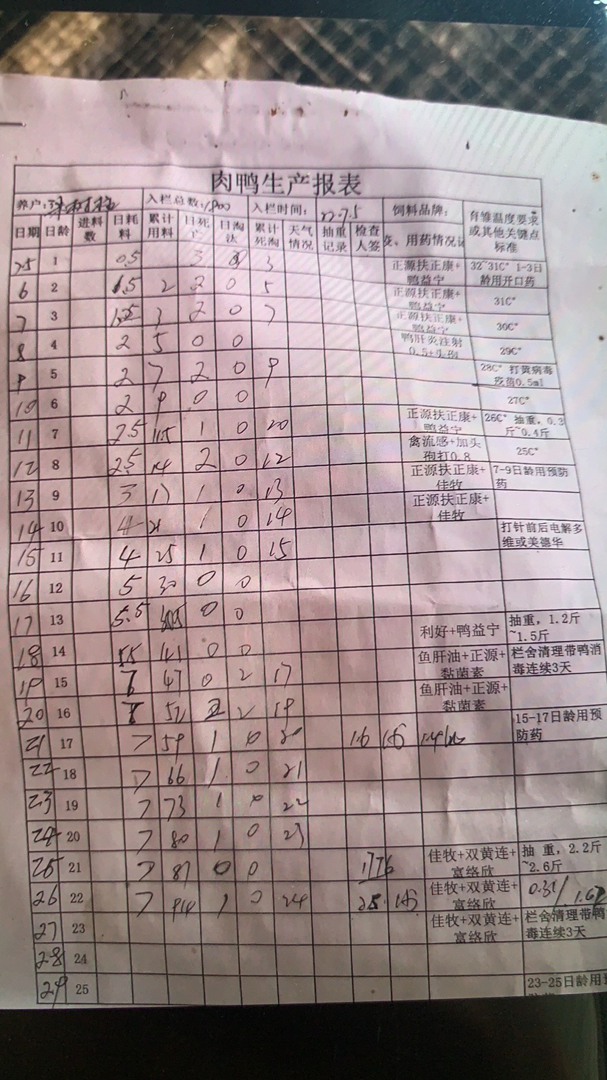 肉鸭生产报表
养户: 入栏总数: 1800 入栏时间: 22.7.5 饲料品牌: 育雏温度要求或其他关键点标准
日期 日龄 进料数 日耗料 累计用料 日死亡 日淘汰 累计死淘 天气情况 抽重记录 检查人签 变、用药情况记
25 1 0.5 3 0 3 正源扶正康+鸭益宁 32~31C° 1-3日龄用开口药
6 2 1.5 2 2 0 5 正源扶正康+鸭益宁 31C°
7 3 2 0 7 正源扶正康+鸭益宁 30C°
8 4 2 5 0 0 鸭肝炎注射 29C°
9 5 2 7 2 0 9 28C° 打黄病毒疫苗0.5ml
10 6 2 9 0 0 27C°
11 7 2.5 11.5 1 0 正源扶正康+鸭益宁 26C° 抽重，0.3斤~0.4斤
12 8 2.5 14 2 0 12 禽流感+加头孢打0.8 25C°
13 9 3 17 1 0 13 正源扶正康+佳牧 7-9日龄用预防药
14 10 4 21 1 0 14 正源扶正康+佳牧
15 11 4 25 1 0 15 打针前后电解多维或美德华
16 12 5 30 0 0
17 13 5.5 0 0
18 14 5.5 41 0 0 利好+鸭益宁 抽重，1.2斤~1.5斤
19 15 6 47 0 2 17 鱼肝油+正源+黏菌素 栏舍清理带鸭消毒连续3天
20 16 52 2 19 鱼肝油+正源+黏菌素
21 17 7 59 1 0 20 1.6 1.45 15-17日龄用预防药
22 18 7 66 1 0 21
23 19 7 73 1 0 22
24 20 7 80 1 0 23
25 21 7 87 0 0 1776 佳牧+双黄连+富络欣 抽重，2.2斤~2.6斤
26 22 7 94 1 0 24 佳牧+双黄连+富络欣
27 23 佳牧+双黄连+富络欣 栏舍清理带鸭消毒连续3天
28 24
29 25 23-25日龄用预